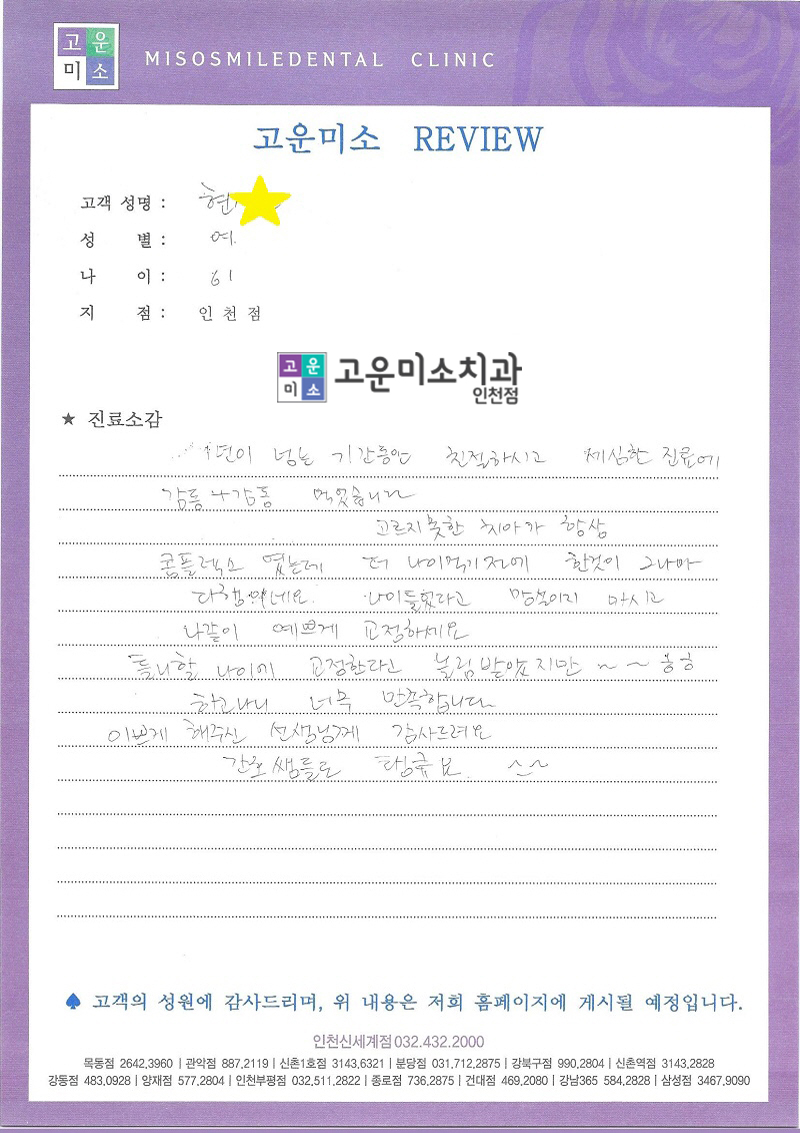 고운
미소
MISOSMILEDENTAL CLINIC
고운미소 REVIEW
고객 성명 : 현
성 별 : 여
나 이 : 61
지 점 : 인 천 점
고운
미소
고운미소치과
인천점
★ 진료소감
년이 넘는 기간동안 친절하시고 세심한 진료에
감동 감동 먹었습니다
고르지못한 치아가 항상
콤플렉스 였는데 더 나이먹기전에 한것이 그나마
다행이네요. 나이들었다고 망설이지 마시고
나같이 예쁘게 교정하세요
틀니할 나이에 교정한다고 놀림받았지만 ~ ~
하고나니 너무 만족합니다
이쁘게 해주신 선생님께 감사드려요
간호쌤들도 땡큐요. ^^~
♠ 고객의 성원에 감사드리며, 위 내용은 저희 홈페이지에 게시될 예정입니다.
인천신세계점 032.432.2000
목동점 2642,3960 | 관악점 887,2119 | 신촌1호점 3143,6321 | 분당점 031,712,2875 | 강북구점 990,2804 | 신촌역점 3143,2828
강동점 483,0928 | 양재점 577,2804 | 인천부평점 032,511,2822 | 종로점 736,2875 | 건대점 469,2080 | 강남365 584,2828 | 삼성점 3467,9090